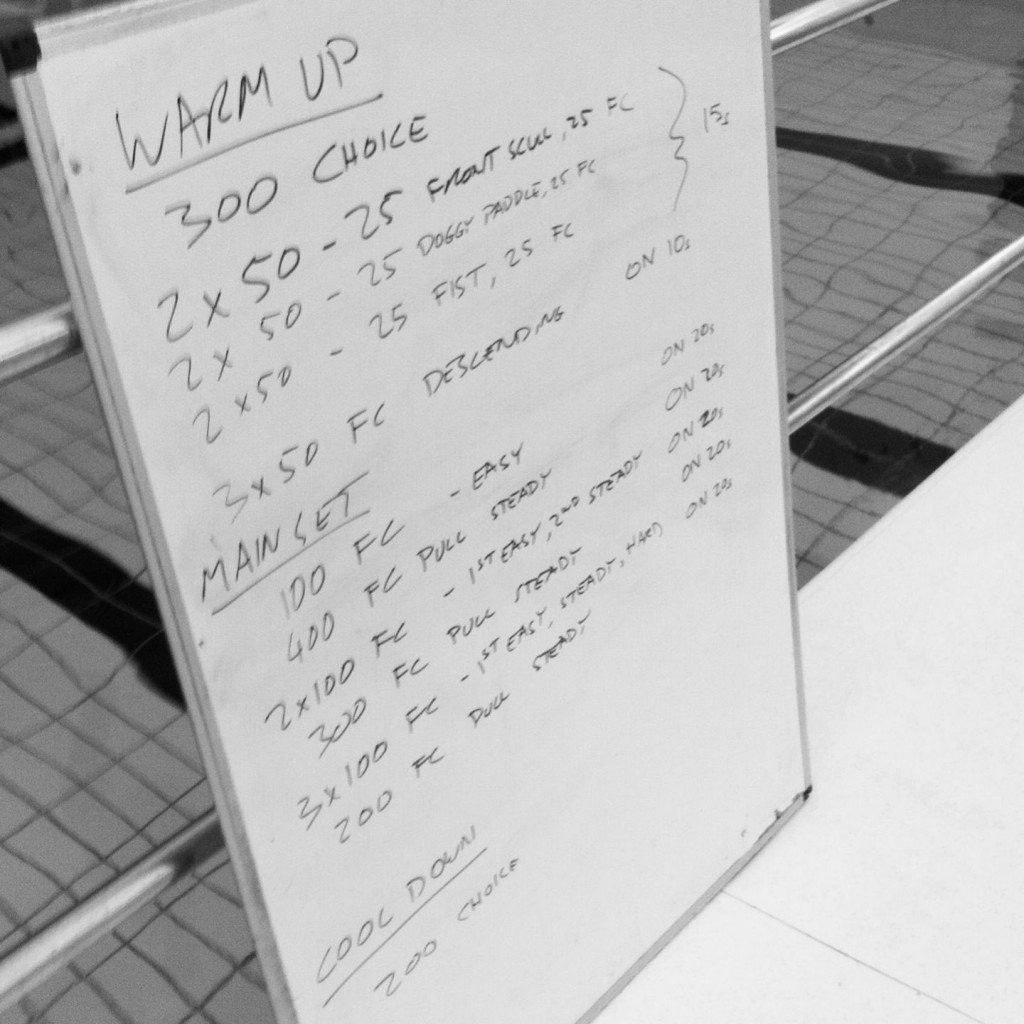 WARM UP
300 CHOICE
2 x 50 - 25 FRONT SCULL, 25 FC
2 x 50 - 25 DOGGY PADDLE, 25 FC
2 x 50 - 25 FIST, 25 FC
15s
3 x 50 FC DESCENDING ON 10s
MAIN SET
100 FC - EASY ON 20s
400 FC PULL STEADY ON 20s
2 x 100 FC - 1ST EASY, 2ND STEADY ON 20s
300 FC PULL STEADY ON 20s
3 x 100 FC - 1ST EASY, STEADY, HARD ON 20s
200 FC PULL STEADY
COOL DOWN
200 CHOICE